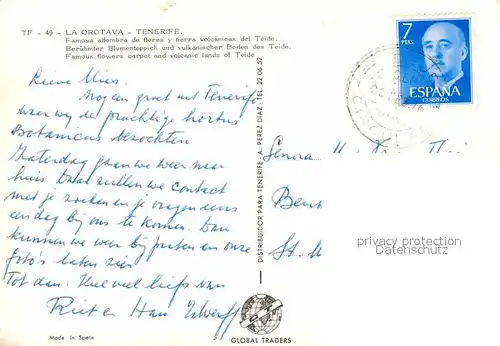 TF - 49 - LA OROTAVA - TENERIFE.
Famosa alfombra de flores y tierra volcánicas del Teide.
Berühmter Blumenteppich und vulkanischer Boden des Teide.
Famous flowers carpet and volcanic lands of Teide
Lieve Mies.
Nog een groet uit Tenerife
waar wij de prachtige hortus
Botanicus bezochten
Zaterdag gaan we weer naar
huis. Daar zullen we contact
met je zoeken en je vragen eens
een dag bij ons te komen. Dan
kunnen we weer bij praten en onze
foto's laten zien
Tot dan: Heel veel liefs van
Riet en Han
Made in Spain
DISTRIBUIDOR PARA TENERIFE - A. PEREZ DIAZ - TEL. 22 06 52
GLOBAL TRADERS
7
PTAS
ESPAÑA
CORREOS
Senora
St. M
privacy protection
Datenschutz